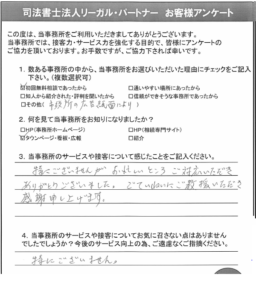 司法書士法人リーガル・パートナー お客様アンケート
この度は、当事務所をご利用いただきましてありがとうございます。
当事務所では、接客力・サービス力を強化する目的で、皆様にアンケートの
ご協力をお願いしております。お手数ですが、ご協力下されば幸いです。
1. 数ある事務所の中から、当事務所をお選びいただいた理由にチェックをご記入
下さい。(複数選択可)
☑初回無料相談であったから □通いやすい場所にあったから
□知人から紹介された・評判を聞いたから □信頼ができそうな事務所であったから
□その他( 役所の広告紙面より )
2. 何を見て当事務所をお知りになりましたか?
□HP(事務所ホームページ) □HP(相続専門サイト)
☑タウンページ・看板・広報 □紹介
3. 当事務所のサービスや接客について感じたことをご記入ください。
特にございませんが お忙しいところ ご対応いただき
ありがとうございました。ごていねいにご教授いただき
感謝申し上げます。
4. 当事務所のサービスや接客についてお気に召さない点はありません
でしたでしょうか?今後のサービス向上の為、ご遠慮なくご指摘ください。
特にございません。